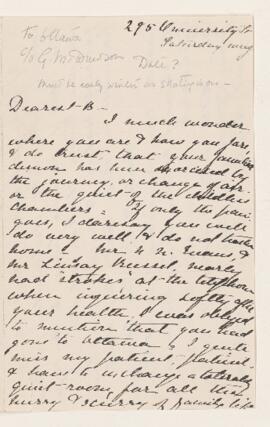 295 University St
Saturday
to Ottawa
c/o G. M. Dawson
Date?
Must be early winter as skating is on -
Dearest B -
I much wonder
where you are & how you fare,
& do trust that your
demon has been exorcised by
the journey, or change of air,
or the quiet of the childless
chambers - If only the pain
goes, I daresay you will
do very well & do not hasten
home - Mr & Mr Evans, &
Mr Lindsay Russel, nearly
had strokes at the telephone
when inquiring softly after
your health. I was obliged
to mention that you had
gone to Ottawa. I quite
miss my patient, patient
& have to exchange a tolerably
quiet room for all the
hurry & scurry of family life